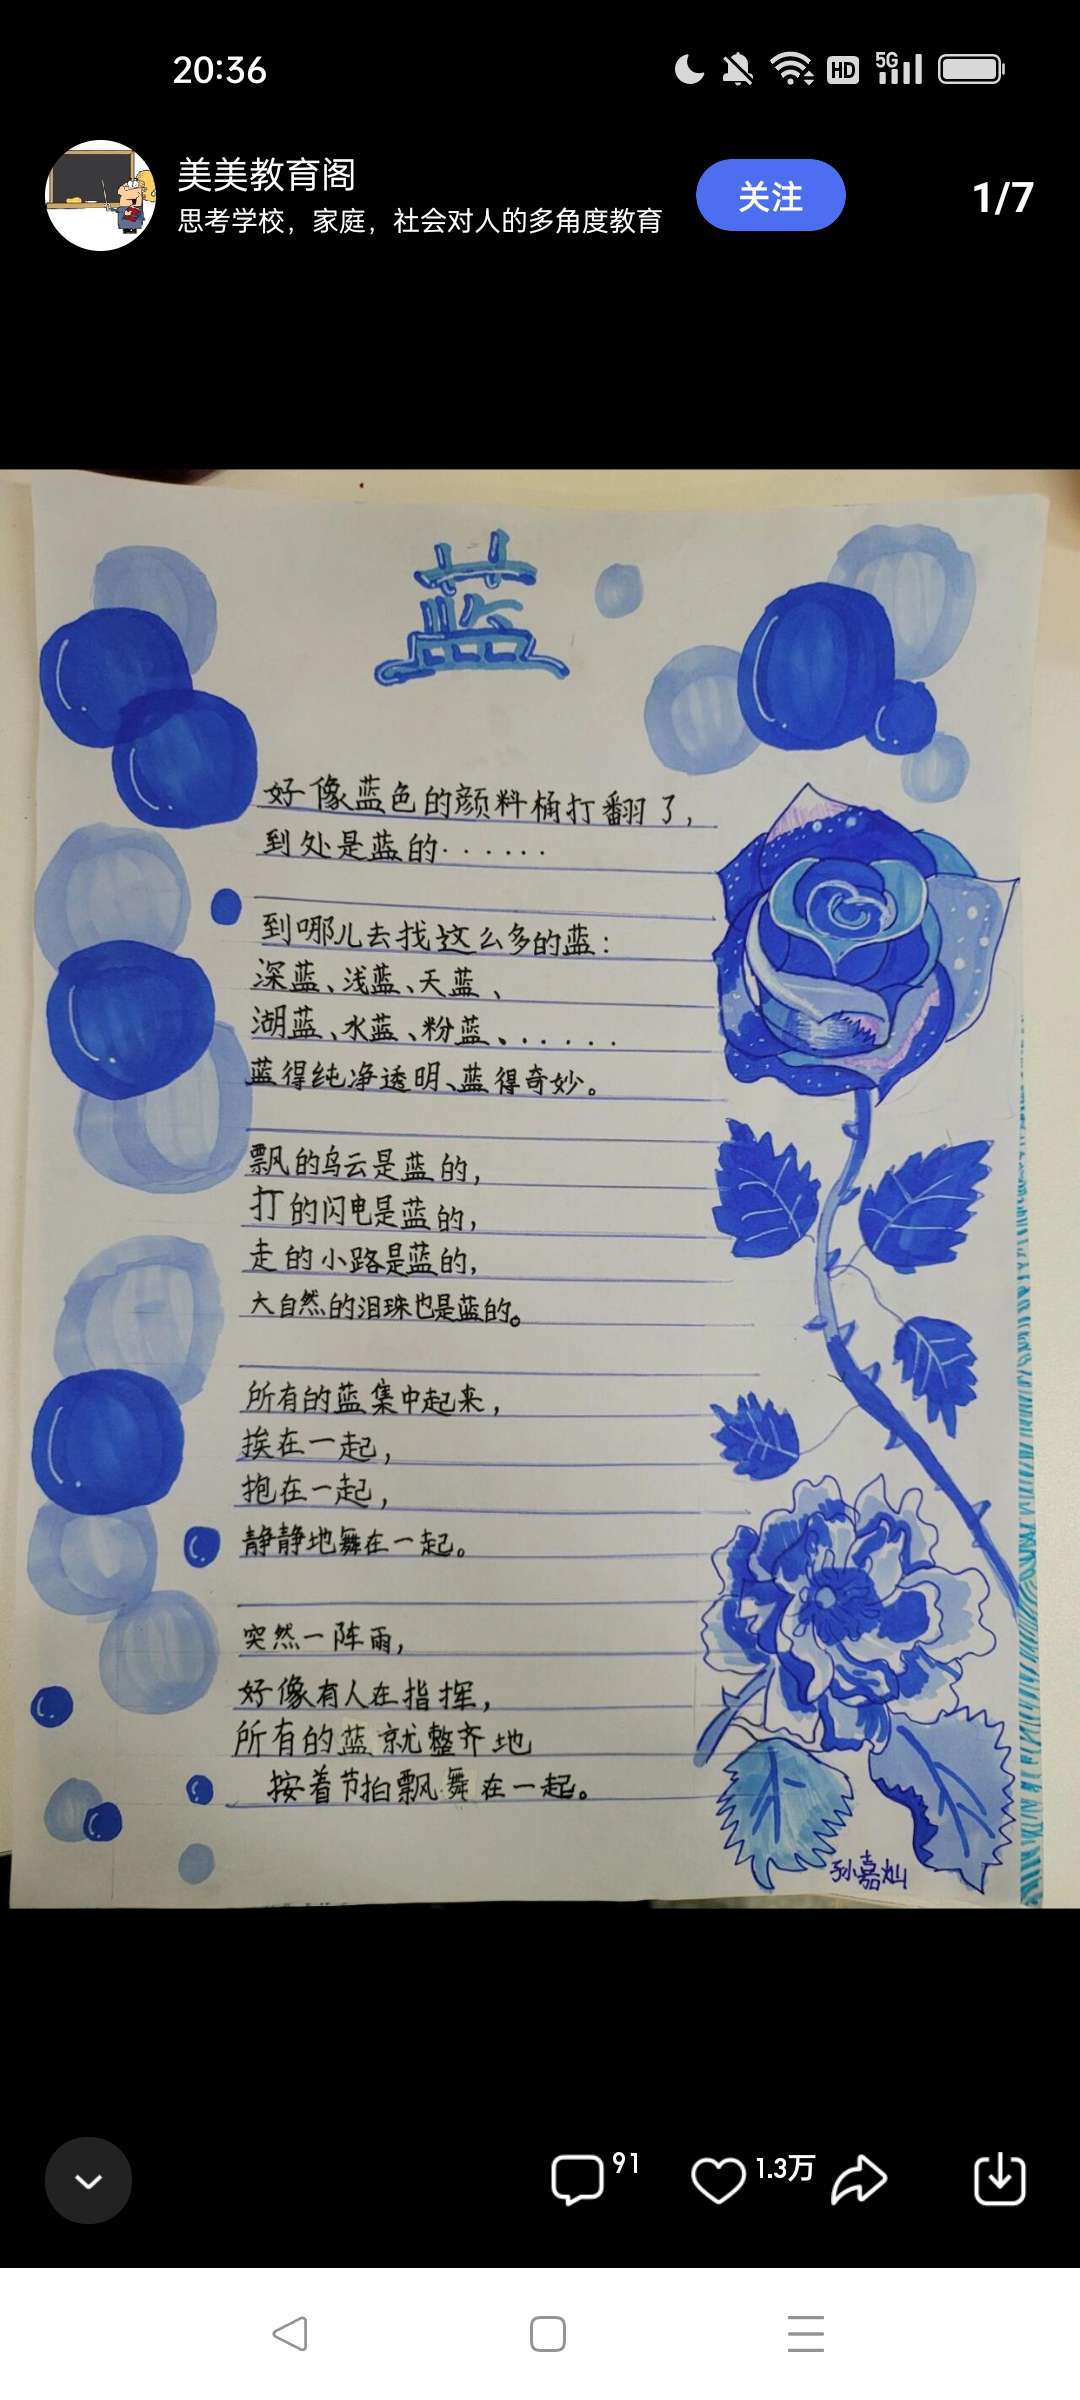 20:36
HD
5G
美美教育阁
思考学校，家庭，社会对人的多角度教育
关注
1/7
蓝
好像蓝色的颜料桶打翻了，
到处是蓝的······
到哪儿去找这么多的蓝：
深蓝、浅蓝、天蓝、
湖蓝、水蓝、粉蓝、······
蓝得纯净透明、蓝得奇妙。
飘的乌云是蓝的，
打的闪电是蓝的，
走的小路是蓝的，
大自然的泪珠也是蓝的。
所有的蓝集中起来，
挨在一起，
抱在一起，
静静地舞在一起。
突然一阵雨，
好像有人在指挥，
所有的蓝就整齐地
按着节拍飘舞在一起。
孙嘉灿
91
1.3万